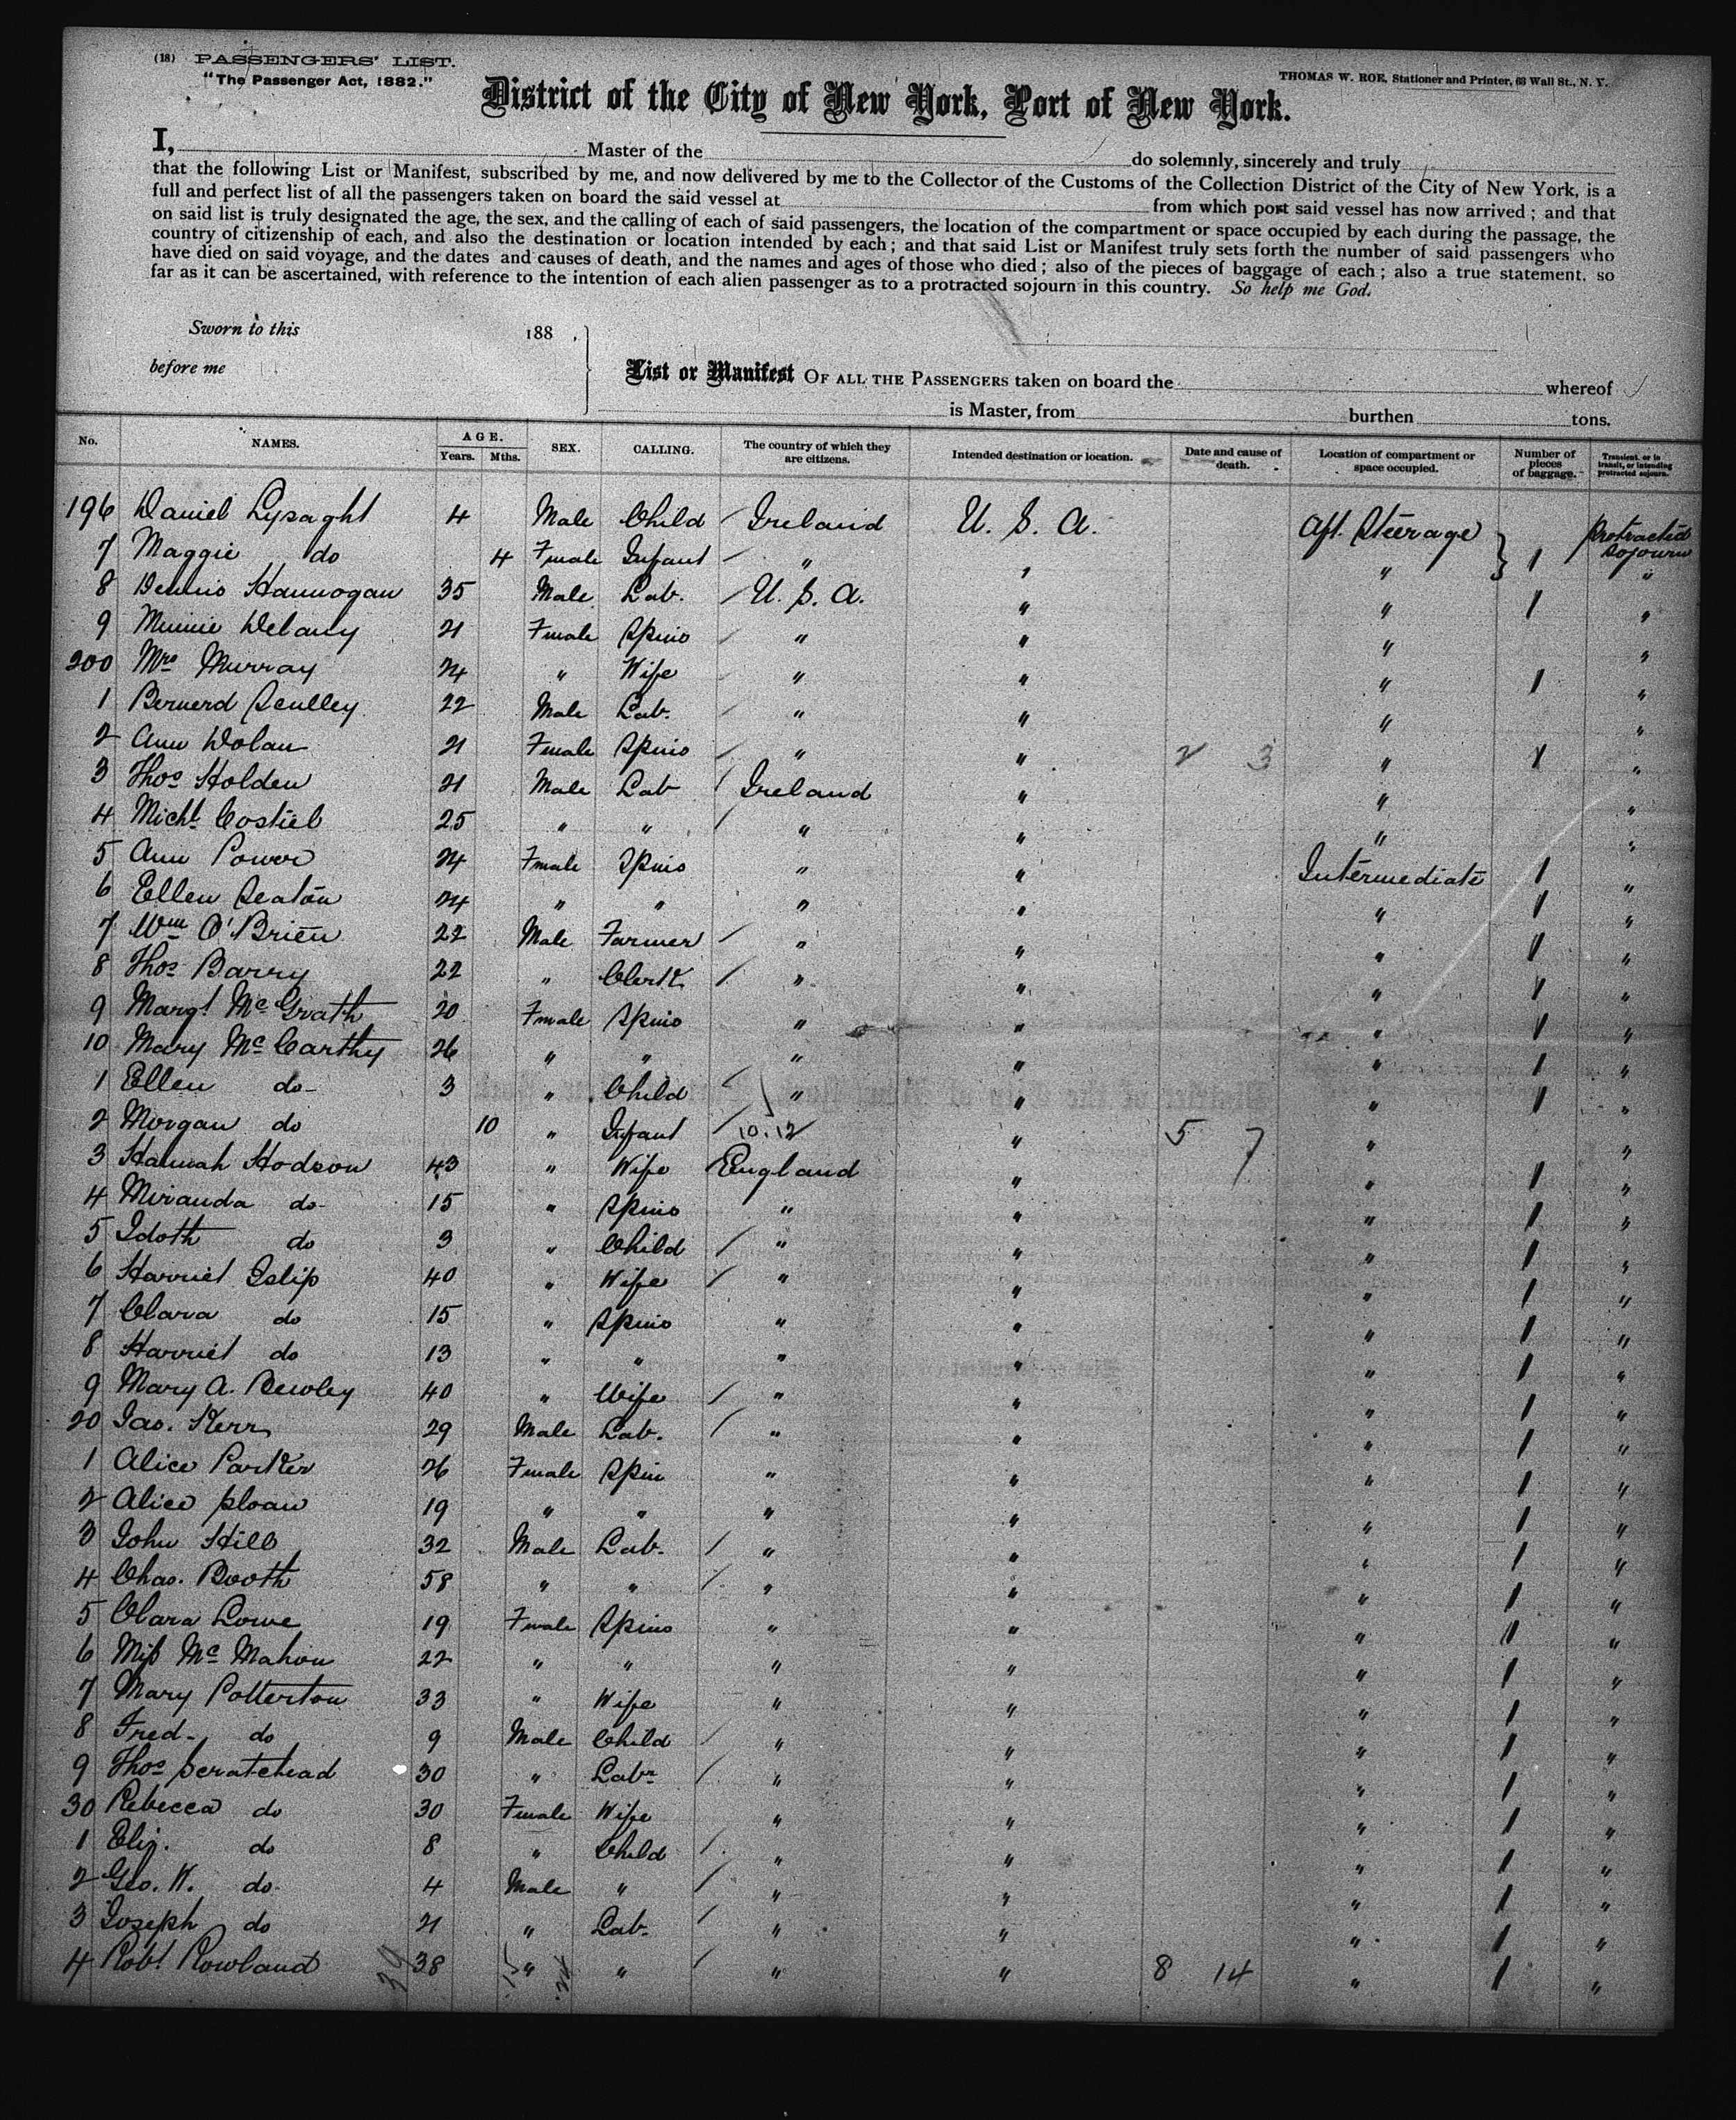 (18) PASSENGERS' LIST.
"The Passenger Act, 1882."
THOMAS W. ROE, Stationer and Printer, 63 Wall St., N. Y.
District of the City of New York, Port of New York.
I, Master of the do solemnly, sincerely and truly
that the following List or Manifest, subscribed by me, and now delivered by me to the Collector of the Customs of the Collection District of the City of New York, is a
full and perfect list of all the passengers taken on board the said vessel at from which port said vessel has now arrived; and that
on said list is truly designated the age, the sex, and the calling of each of said passengers, the location of the compartment or space occupied by each during the passage, the
country of citizenship of each, and also the destination or location intended by each; and that said List or Manifest truly sets forth the number of said passengers who
have died on said voyage, and the dates and causes of death, and the names and ages of those who died; also of the pieces of baggage of each; also a true statement, so
far as it can be ascertained, with reference to the intention of each alien passenger as to a protracted sojourn in this country. So help me God.
Sworn to this 188 .
before me
List or Manifest OF ALL THE PASSENGERS taken on board the whereof
is Master, from burthen tons.
No. NAMES. AGE. Years. Mths. SEX. CALLING. The country of which they are citizens. Intended destination or location. Date and cause of death. Location of compartment or space occupied. Number of pieces of baggage. Transient, or in transit, or intending protracted sojourn.
196 Daniel Lysaght 4 Male Child / Ireland U. S. A. Aft. Steerage Protracted Sojourn
7 Maggie do 4 Female Infant / " " " 1 "
8 Dennis Hannogan 35 Male Lab. / U. S. A. " " 1 "
9 Minnie Delany 21 Female Spins / " " " "
200 Mrs Murray 24 " Wife " " " 1 "
1 Bernerd Sculley 22 Male Lab. / " " " "
2 Ann Dolan 21 Female Spins / " " 2 3 " 1 "
3 Thos Holden 21 Male Lab / Ireland " " "
4 Michl. Costiel 25 " " / " " " "
5 Ann Power 24 Female Spins " " Intermediate 1 "
6 Ellen Seaton 24 " " " " " 1 "
7 Wm O'Brien 22 Male Farmer / " " " 1 "
8 Thos Barry 22 " Clerk / " " " 1 "
9 Margt. McGrath 20 Female Spins " " " 1 "
10 Mary McCarthy 26 " " " " " 1 "
1 Ellen do 3 " Child / " " " 1 "
2 Morgan do 10 " Infant / 10.12 " 5 7 " "
3 Hannah Hodson 43 " Wife England " " 1 "
4 Miranda do 15 " Spins " " " 1 "
5 Idoth do 3 " Child / " " " 1 "
6 Harriet Islip 40 " Wife / " " " 1 "
7 Clara do 15 " Spins " " " 1 "
8 Harriet do 13 " " " " " 1 "
9 Mary A. Bewley 40 " Wife / " " " 1 "
20 Jas. Kerr 29 Male Lab. / " " " 1 "
1 Alice Parker 26 Female Spin " " " 1 "
2 Alice Sloan 19 " " " " " 1 "
3 John Hill 32 Male Lab. / " " " 1 "
4 Chas. Booth 58 " " / " " " 1 "
5 Clara Lowe 19 Female Spins " " " 1 "
6 Miss McMahon 22 " " " " " 1 "
7 Mary Potterton 33 " Wife " " " 1 "
8 Fred. do 9 Male Child / " " " 1 "
9 Thos Scratchead 30 " Labr / " " " 1 "
30 Rebecca do 30 Female Wife " " " 1 "
1 Eliz. do 8 " Child / " " " 1 "
2 Geo. W. do 4 Male " / " " " 1 "
3 Joseph do 21 " Lab. / " " " 1 "
4 Robt Rowland 38 " " / " " 8 14 " 1 "